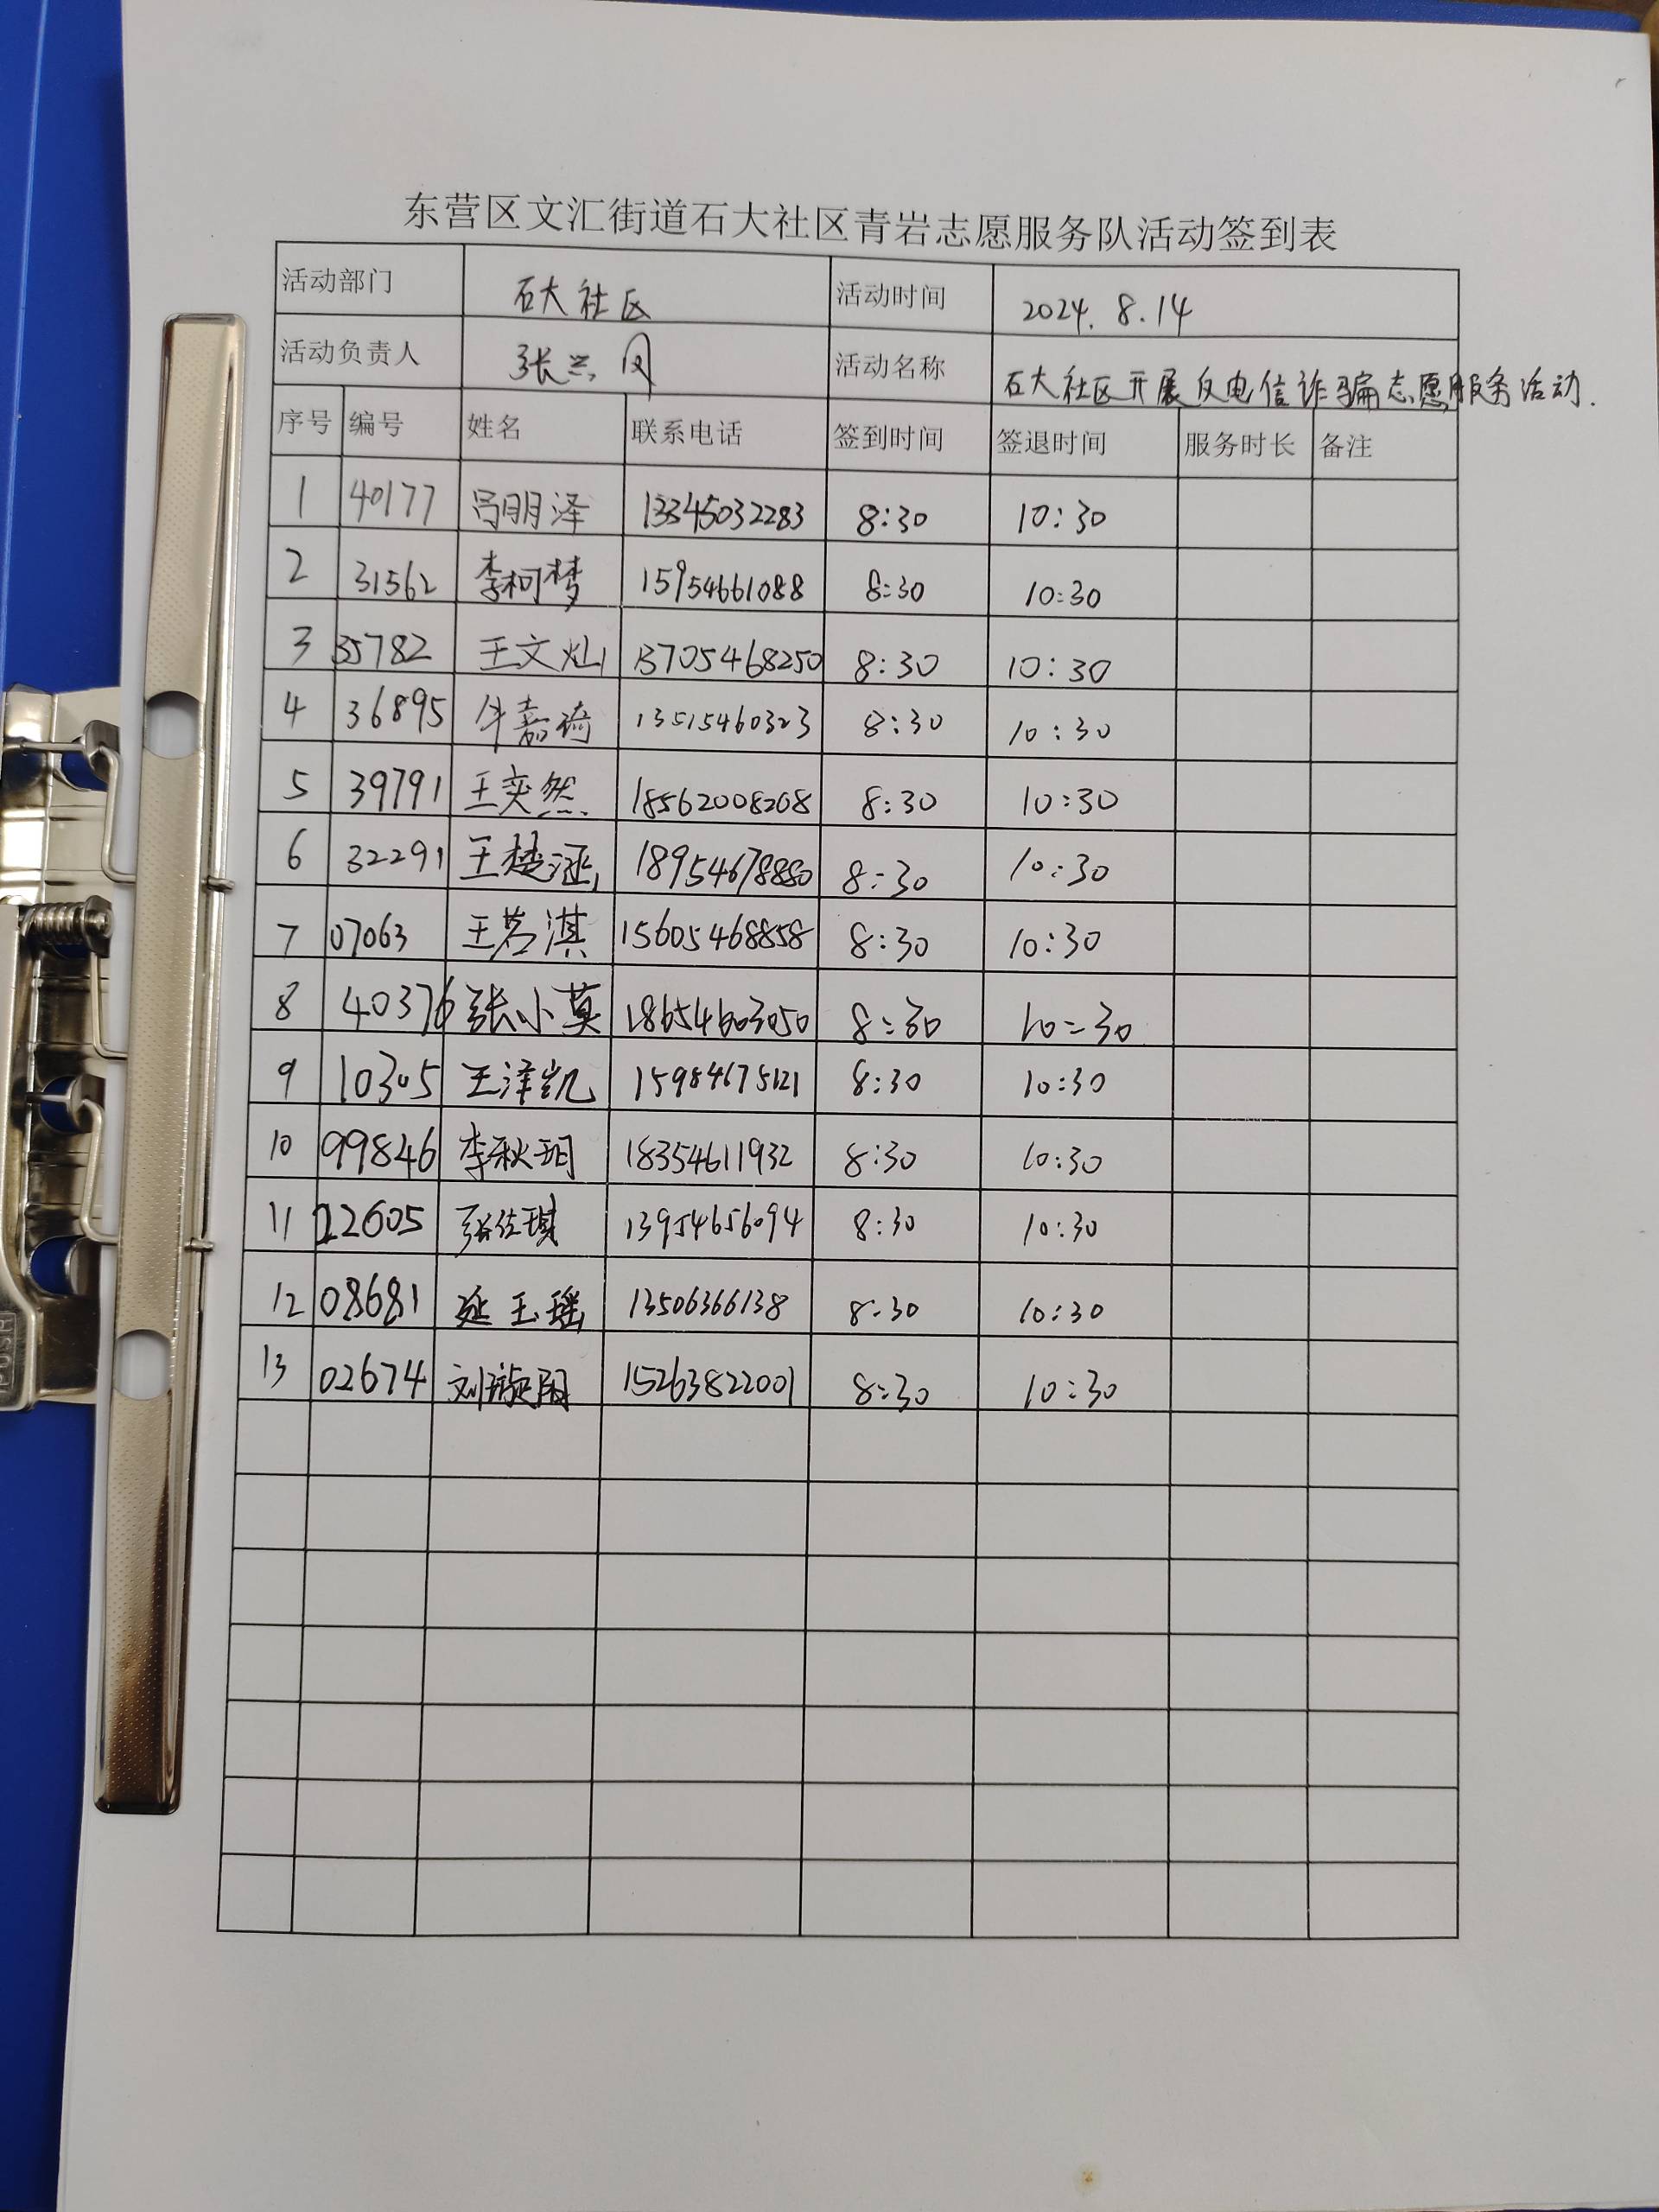 东营区文汇街道石大社区青岩志愿服务队活动签到表
活动部门 石大社区 活动时间 2024.8.14
活动负责人 张兰凤 活动名称 石大社区开展反电信诈骗志愿服务活动.
序号 编号 姓名 联系电话 签到时间 签退时间 服务时长 备注
1 40177 吕朋泽 13345032283 8:30 10:30
2 31562 李柯梦 15954661088 8:30 10:30
3 35782 王文灿 13705468250 8:30 10:30
4 36895 牛嘉琦 13515460323 8:30 10:30
5 39791 王奕然 18562008268 8:30 10:30
6 32291 王楚涵 18954678880 8:30 10:30
7 07063 王茗淇 15605468858 8:30 10:30
8 40376 张小莫 18654603050 8:30 10:30
9 10305 王泽凯 15984675121 8:30 10:30
10 99846 李秋玥 18354611932 8:30 10:30
11 22605 张佳琪 13954656094 8:30 10:30
12 08681 延玉瑶 13506366138 8:30 10:30
13 02674 刘璇 15263822001 8:30 10:30
PUSH